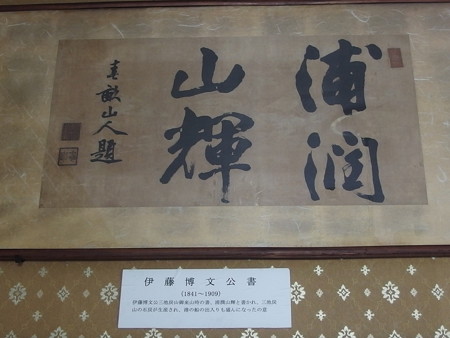 浦潤
山輝
春畝山人題
伊藤博文公書
(1841～1909)
伊藤博文公三池炭山御来山時の書、浦潤山輝と書かれ、三池炭
山の石炭が生産され、港の船の出入りも盛んになったの意